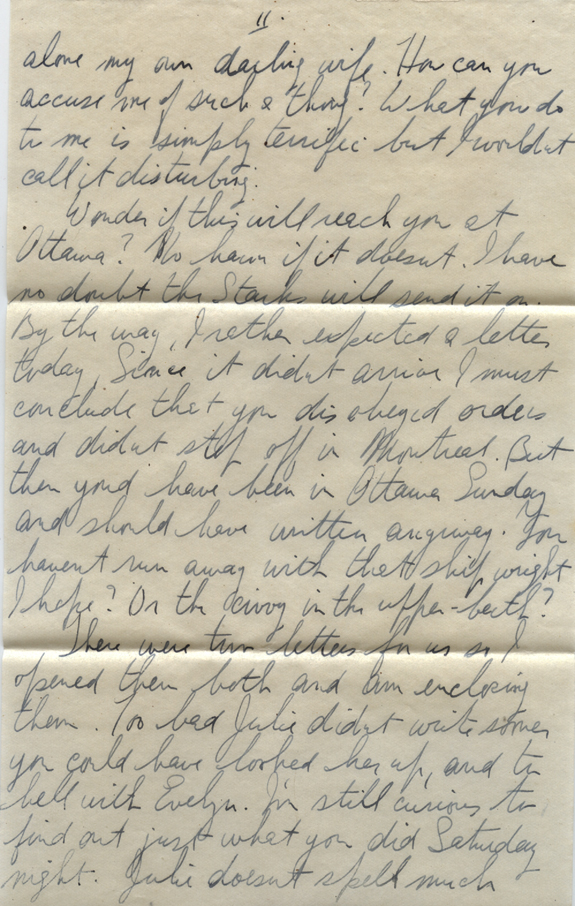 11.
alone my own darling wife. How can you
accuse me of such a thing? What you do
to me is simply terrific but I wouldnt
call it disturbing.
Wonder if this will reach you at
Ottawa? No harm if it doesnt. I have
no doubt the Starks will send it on.
By the way, I rather expected a letter
today, Since it didnt arrive I must
conclude that you disobeyed orders
and didnt stop off in Montreal. But
then youd have been in Ottawa Sunday
and should have written anyway. You
havent run away with that shipwright
I hope? Or the in the upper-berth?
There were two letters for us so I
opened them both and am enclosing
them. Too bad Julie didnt write sooner
you could have looked her up, and to
hell with Evelyn. I'm still curious to
find out just what you did Saturday
night. Julie doesnt spell much